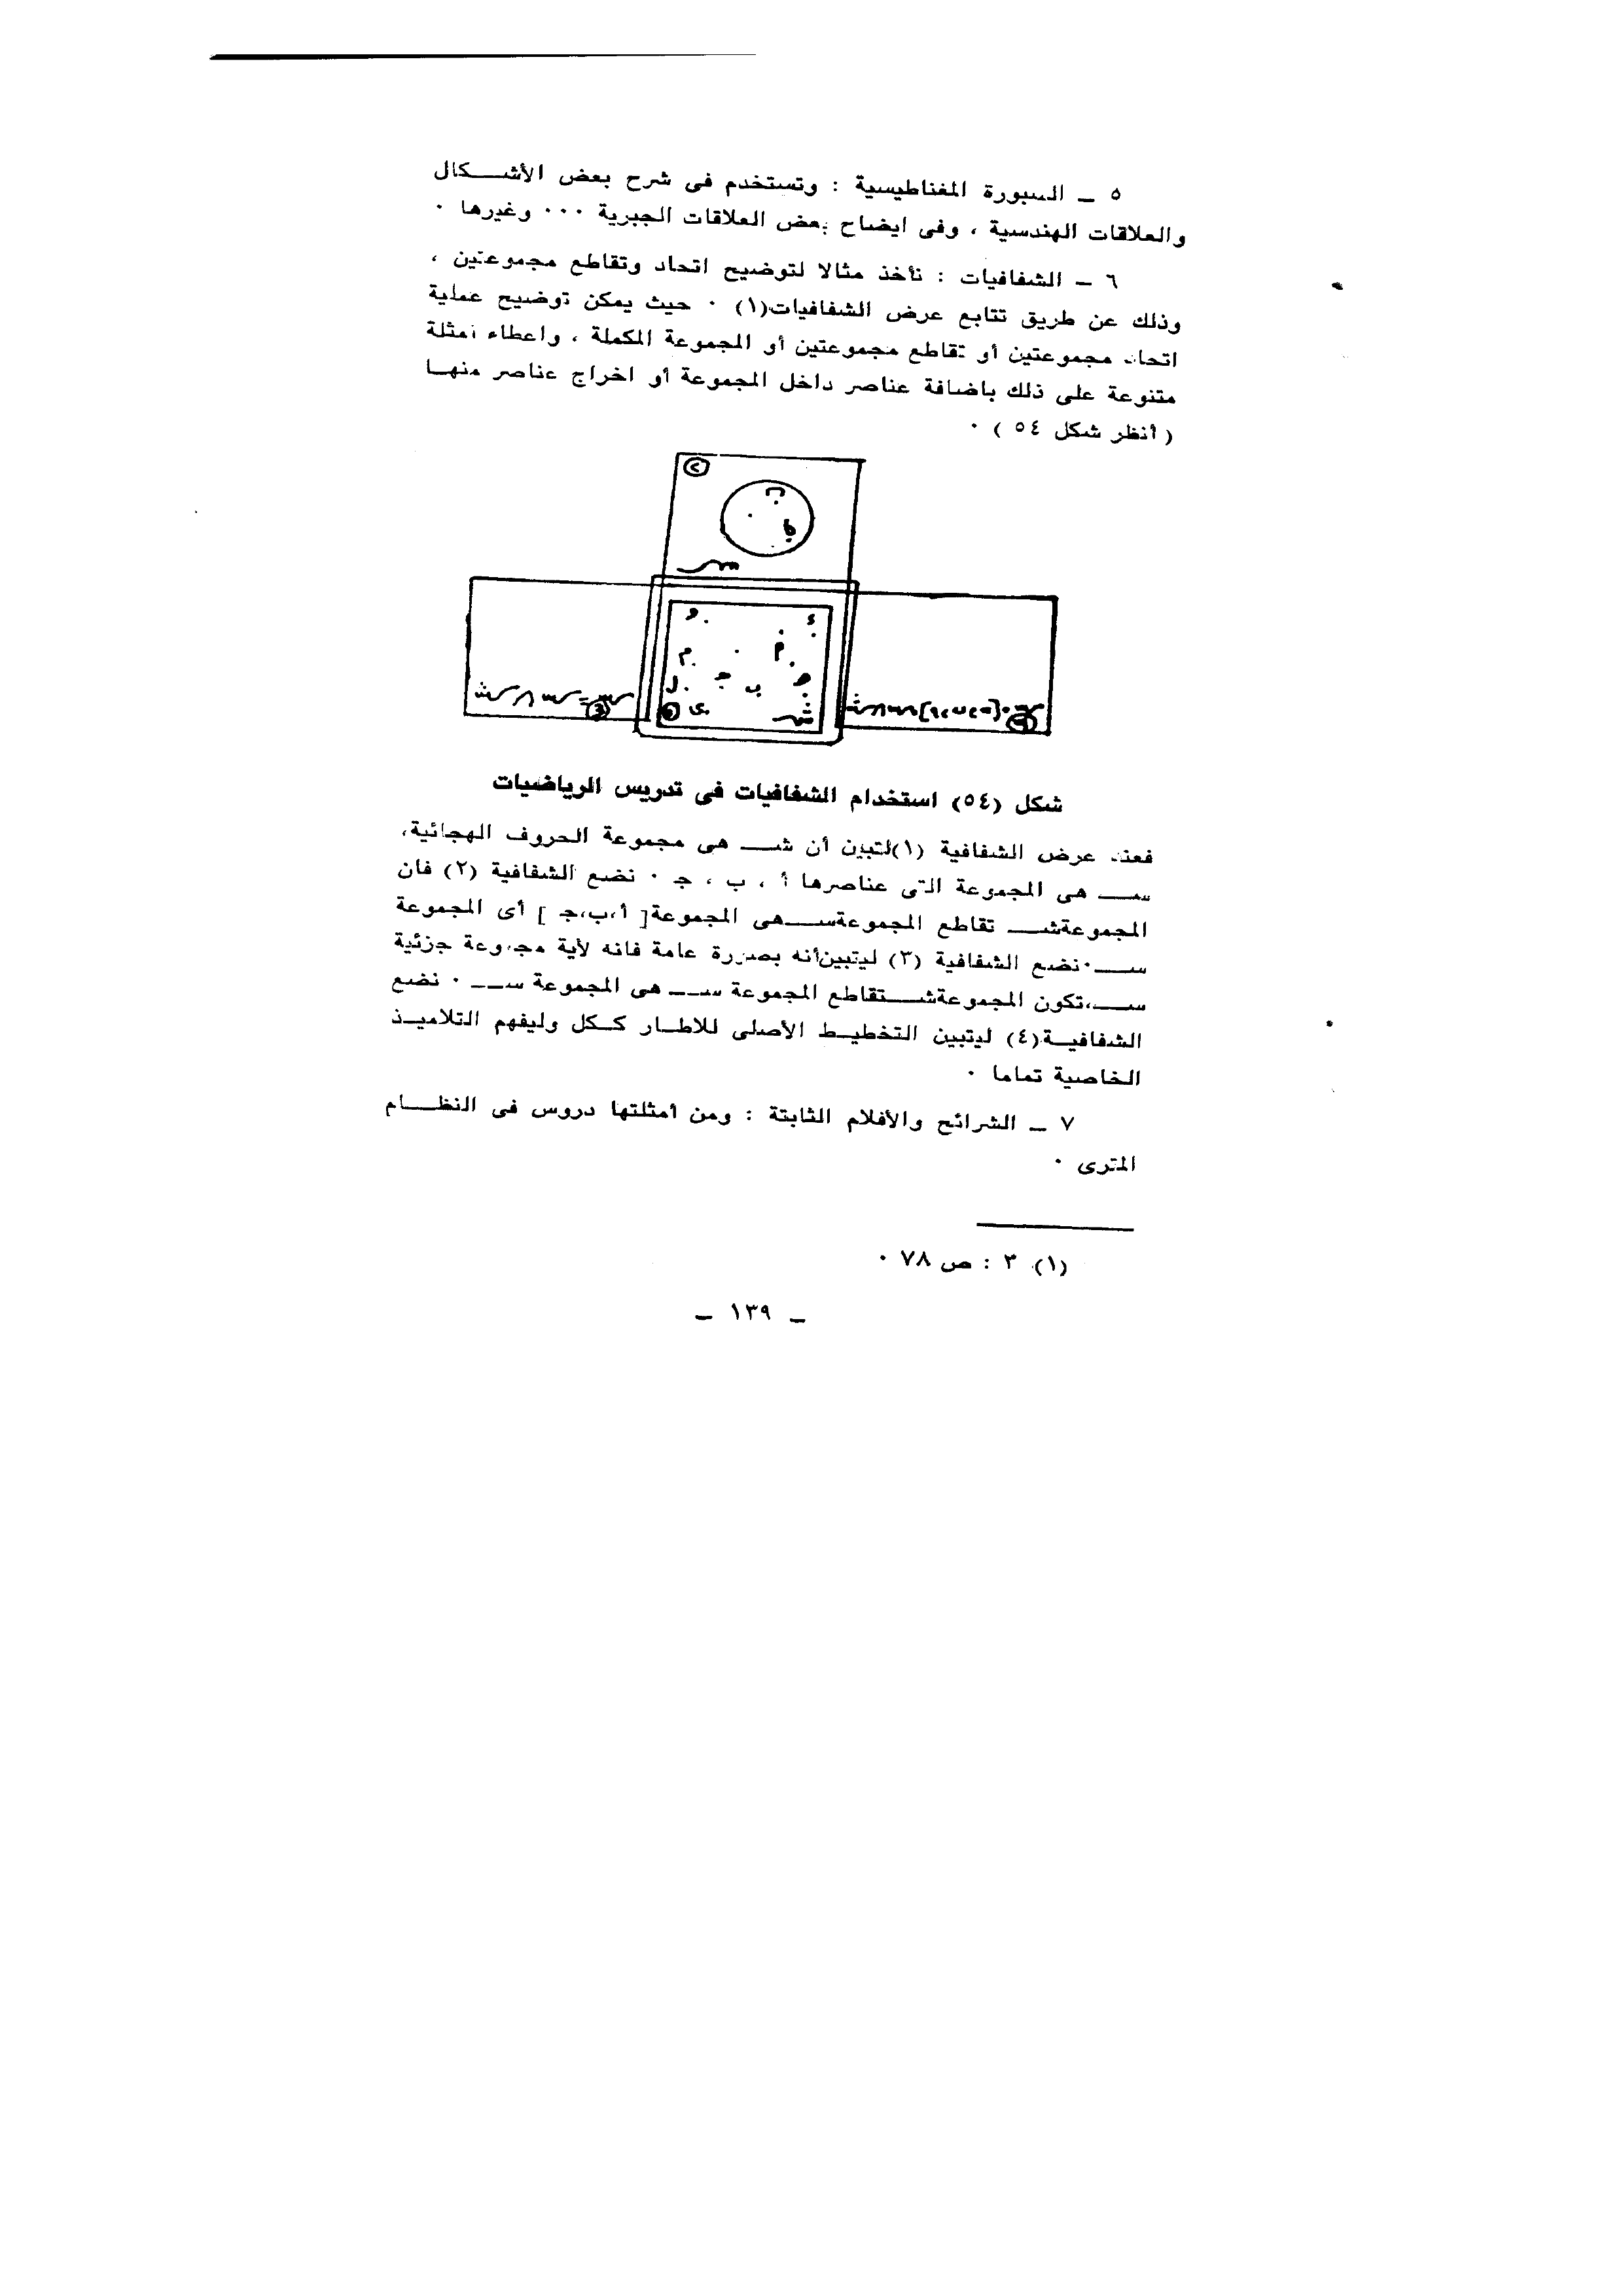 ٥ ــ السبورة المغناطيسية : وتستخدم فى شرح بعض الأشـــكال
والعلاقات الهندسية ، وفى ايضاح بعض العلاقات الجبرية ٠٠٠ وغيرها ٠
٦ ــ الشفافيات : نأخذ مثالا لتوضيح اتحاد وتقاطع مجموعتين ،
وذلك عن طريق تتابع عرض الشفافيات(١) ٠ حيث يمكن توضيح عملية
اتحاد مجموعتين أو تقاطع مجموعتين أو المجموعة المكملة ، واعطاء أمثلة
متنوعة على ذلك باضافة عناصر داخل المجموعة أو اخراج عناصر منهـا
( أنظر شكل ٥٤ ) ٠
شكل (٥٤) استخدام الشفافيات فى تدريس الرياضيات
فعند عرض الشفافية (١)لتبين أن شـــ هى مجموعة الحروف الهجائية،
ســـ هى المجموعة التى عناصرها أ ، ب ، جـ ٠ نضع الشفافية (٢) فان
المجموعةشـــ تقاطع المجموعةســـهى المجموعة[ أ،ب،جـ ] أى المجموعة
ســـ٠نضع الشفافية (٣) ليتبينأنه بصورة عامة فانه لأية مجموعة جزئية
ســـ،تكون المجموعةشـــتقاطع المجموعة ســـ هى المجموعة ســـ ٠ نضع
الشفافيــة(٤) ليتبين التخطيـط الأصلى للاطـار ككـل وليفهم التلاميـذ
الخاصية تماما ٠
٧ ــ الشرائح والأفلام الثابتة : ومن أمثلتها دروس فى النظـــام
المترى ٠
(١) ٣ : ص ٧٨ ٠
ــ ١٣٩ ــ